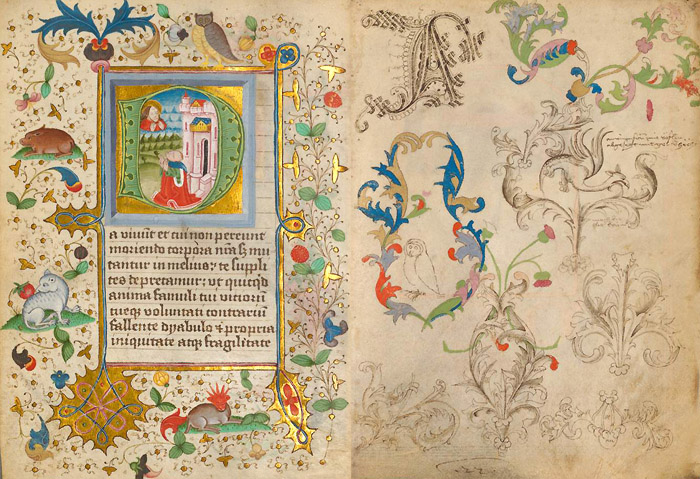 D
a viuūt et cui non pereunt
moriendo corpora nr̃a sꝫ mu
tantur in melius; te suppli
ces deprecamur; ut quicq̄d
anima famuli tui viciorū
tueqꝫ voluntati contrariū
fallente dyabulo ⁊ propria
iniquitate atqꝫ fragilitate
A